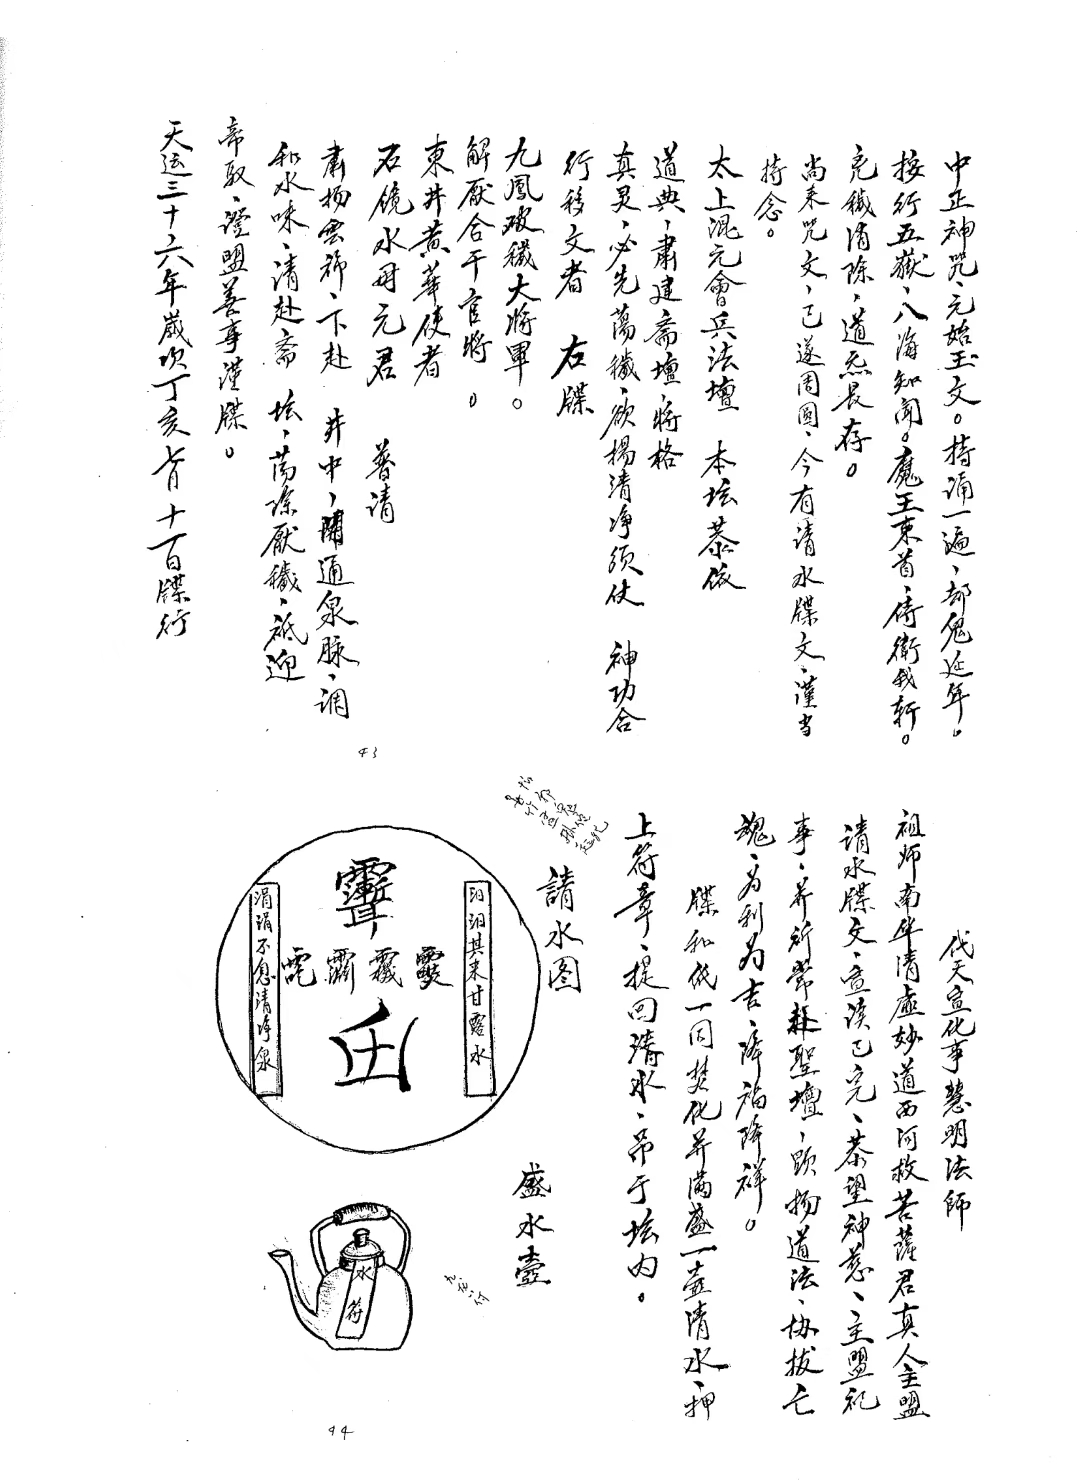 中正神咒、元始玉文。持诵一遍、却鬼延年。
按行五嶽、八海知闻。魔王束首、侍衛我轩。
兇穢消除、道炁長存。
尚来咒文、已遂周圆、今有请水牒文、谨当
持念。
太上混元會兵法壇　本坛恭依
道典、肅建斋壇、将格
真灵、必先蕩穢、欲揚清净须仗　神功合
行移文者　右牒
九鳳破穢大將軍。
解厭合干官將。
東井黄華使者
石镜水母元君　普请
肃揚雲斾、下赴　井中、開通泉脉、调
和水味、清赴斋　坛、荡涤厭穢、祗迎
帝驭、證盟善事谨牒。
天运三十六年歳次丁亥七月十一日牒行
43
代天宣化事慧明法師
祖师南华清虚妙道西河救苦薩君真人主盟
请水牒文、宣读已完、恭望神慈、主盟礼
事、并祈常赴聖壇、顕揚道法、协拔亡
魂、为利为吉、降福降祥。
牒和纸一同焚化并满盛一壶清水、押
上符章、提回清水、吊于坛内。
請水图
汩汩其来甘露水
涓涓不息清净泉
盛水壼
水符
44